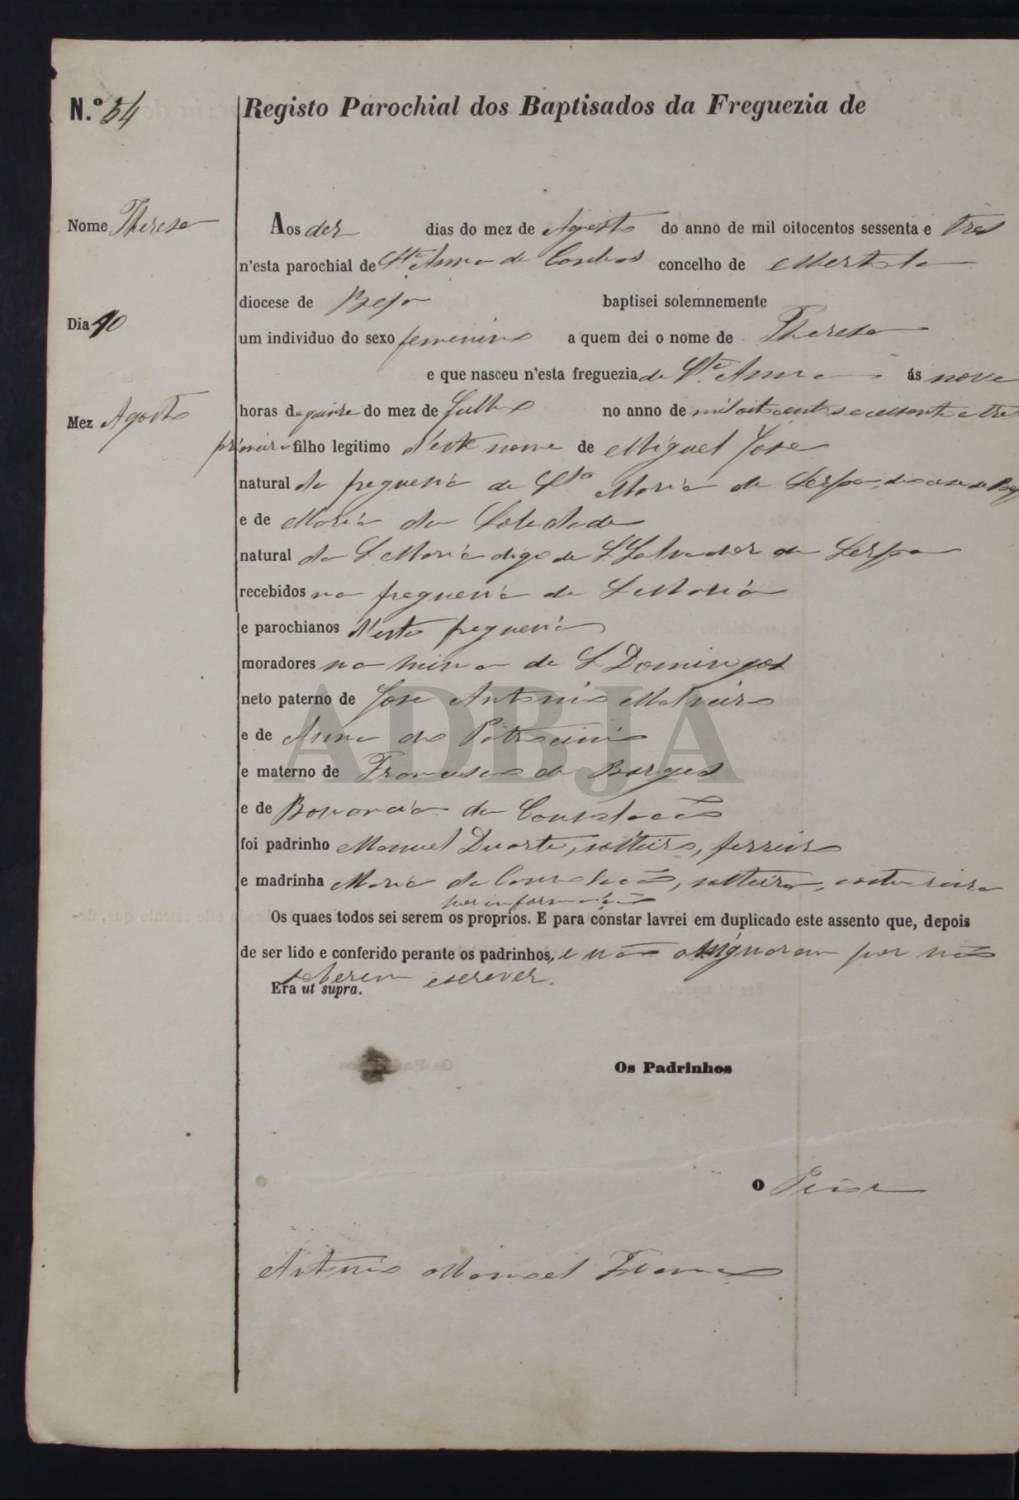 N.º 54
Registo Parochial dos Baptisados da Freguezia de
Nome Theresa
Aos dez dias do mez de Agosto do anno de mil oitocentos sessenta e tres
n'esta parochial de Stª Anna de Cambas concelho de Mertola
diocese de Beja baptisei solemnemente
Dia 10
um individuo do sexo feminino a quem dei o nome de Theresa
e que nasceu n'esta freguezia de Stª Anna ás nove
Mez Agosto
horas do quinze do mez de Julho no anno de mil oitocentos e sessenta e tres
primeiro filho legitimo d'este nome de Miguel José
natural da freguesia de Stª Maria de Serpa
e de Maria da Soledade
natural da S Maria digo de S Salvador de Serpa
recebidos na freguesia de S Maria
e parochianos d'esta freguesia
moradores na mina de S Domingos
neto paterno de José Antonio
e de Anna do Patrocinio
e materno de Francisco de Borges
e de da Consolação
foi padrinho Manuel Duarte, solteiro, ferreiro
e madrinha Maria da Consolação, solteira, costureira
por informação
Os quaes todos sei serem os proprios. E para constar lavrei em duplicado este assento que, depois
de ser lido e conferido perante os padrinhos, e não assignaram por não
saberem escrever.
Era ut supra.
Os Padrinhos
O Prior
Antonio Manoel
ADBJA